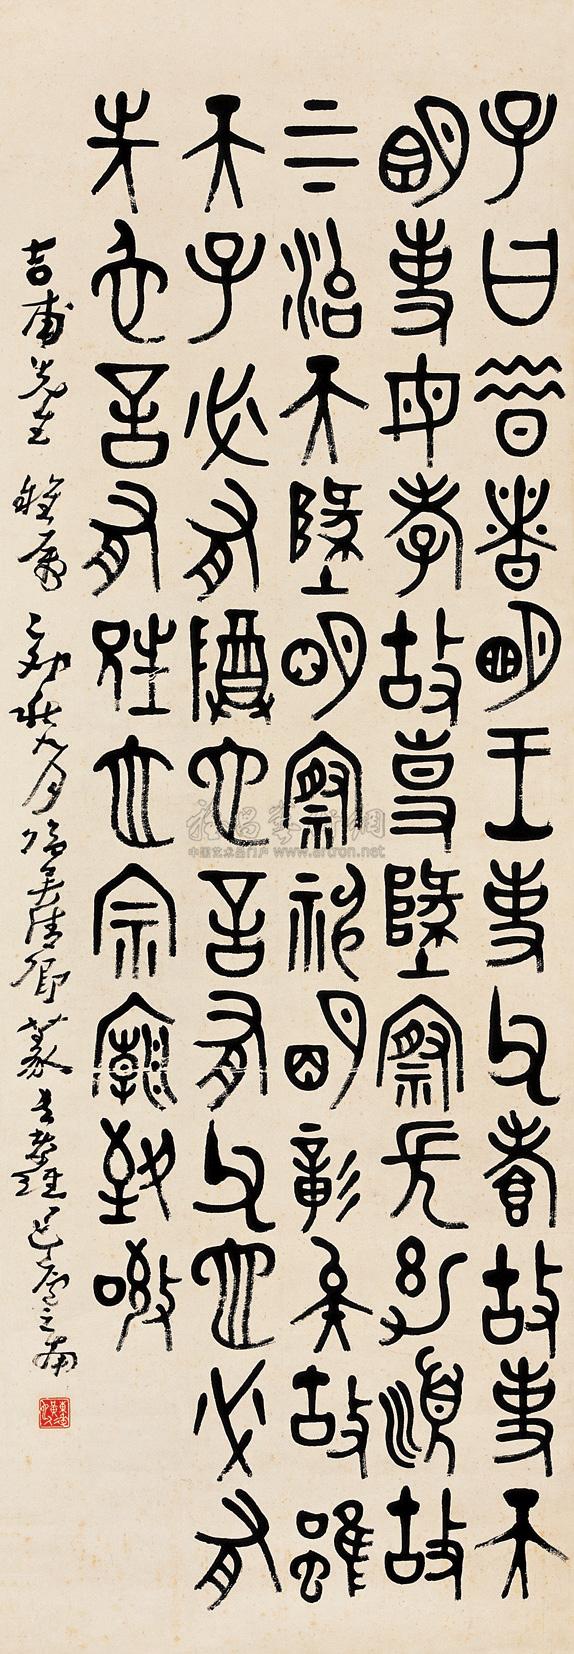 子曰昔者明王事父孝故事天
明事母孝故事地察長幼順故
上下治天地明察神明彰矣故雖
天子必有尊也言有父也必有
先也言有兄也宗廟致敬
吉甫先生雅屬 乙卯秋九月 吳清卿篆書
雅昌藝術網
中国艺术品门户 www.artron.net